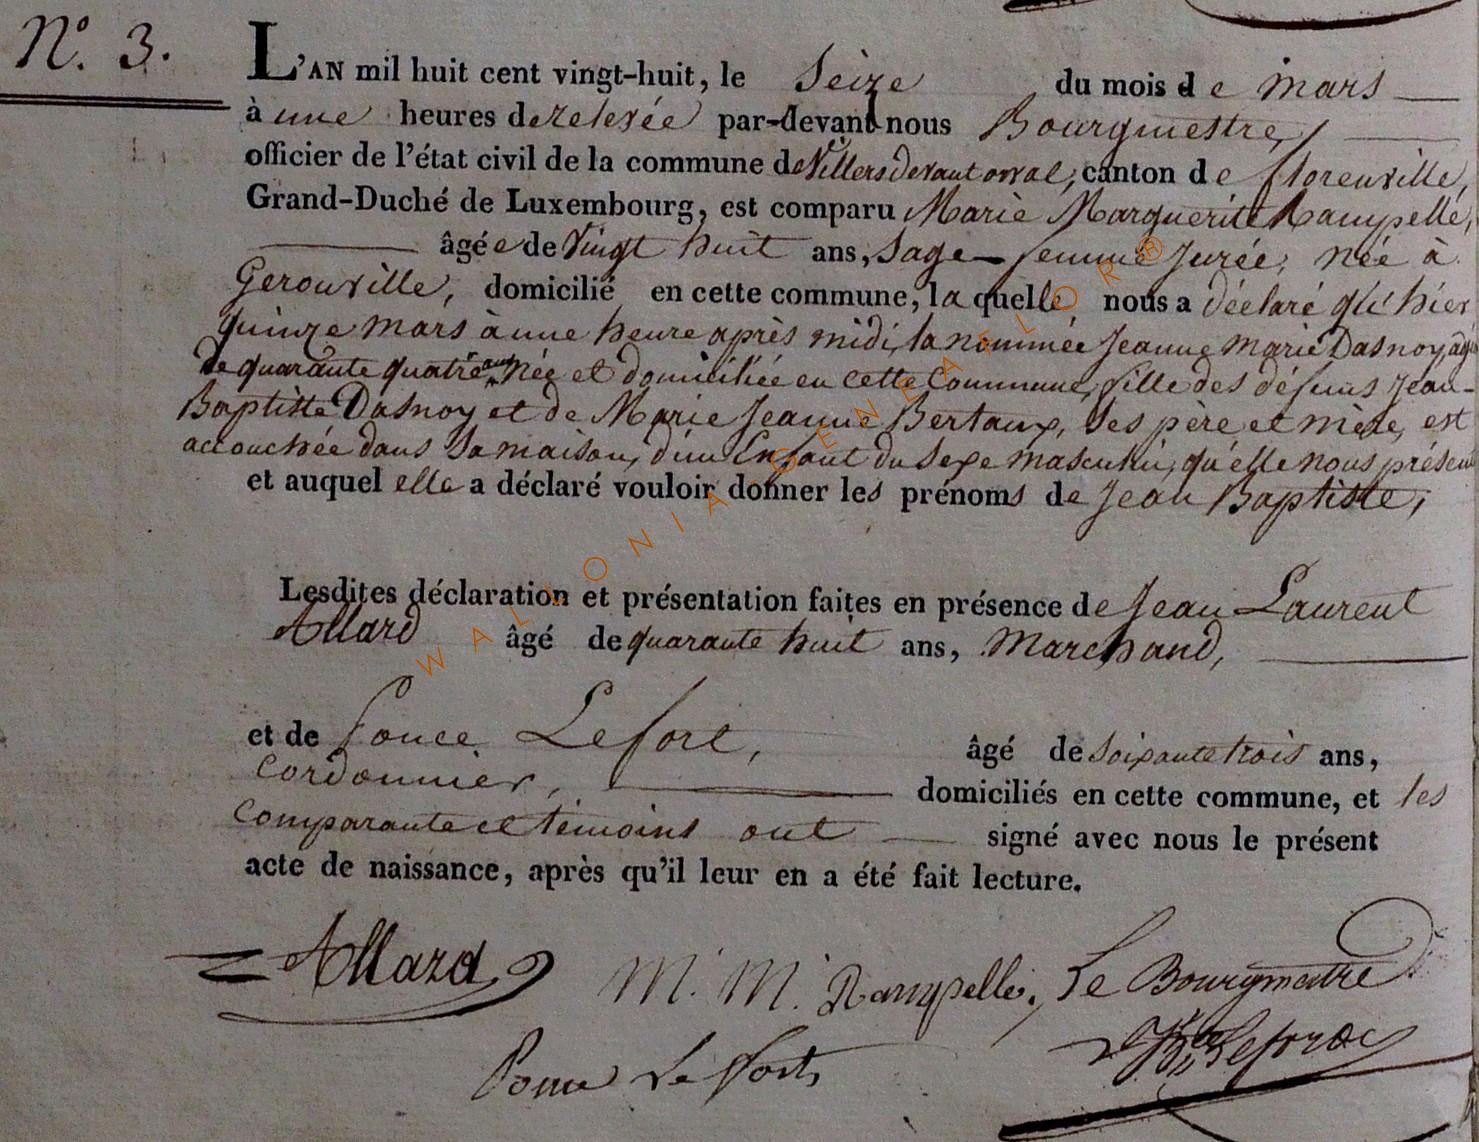 N.° 3.
L'AN mil huit cent vingt-huit, le Seize du mois de mars
à une heures de relevée par-devant nous Bourgmestre,
officier de l'état civil de la commune de Villers devant orval, canton de florenville,
Grand-Duché de Luxembourg, est comparu Marie Marguerite Rampelle,
âgée de vingt huit ans, Sage-femme jurée, née à
Gerouville, domicilié en cette commune, laquelle nous a déclaré qu'hier
quinze mars à une heure après midi, la nommée Jeanne Marie Dasnoy, agée
de quarante quatre ans née et domiciliée en cette Commune, fille des défunts Jean-
Baptiste Dasnoy et de Marie Jeanne Bertaux, ses père et mère, est
accouchée dans sa maison, d'un Enfant du sexe masculin, qu'elle nous présente
et auquel elle a déclaré vouloir donner les prénoms de Jean Baptiste,
Lesdites déclaration et présentation faites en présence de Jean Laurent
Allard âgé de quarante huit ans, Marchand,
et de Ponce Lefort, âgé de soixante trois ans,
Cordonnier, domiciliés en cette commune, et les
Comparante et témoins ont signé avec nous le présent
acte de naissance, après qu'il leur en a été fait lecture.
Allard M. M. Rampelle, Le Bourgmestre
Ponce Le Fort
WALLONIA-GENEAFLOR®